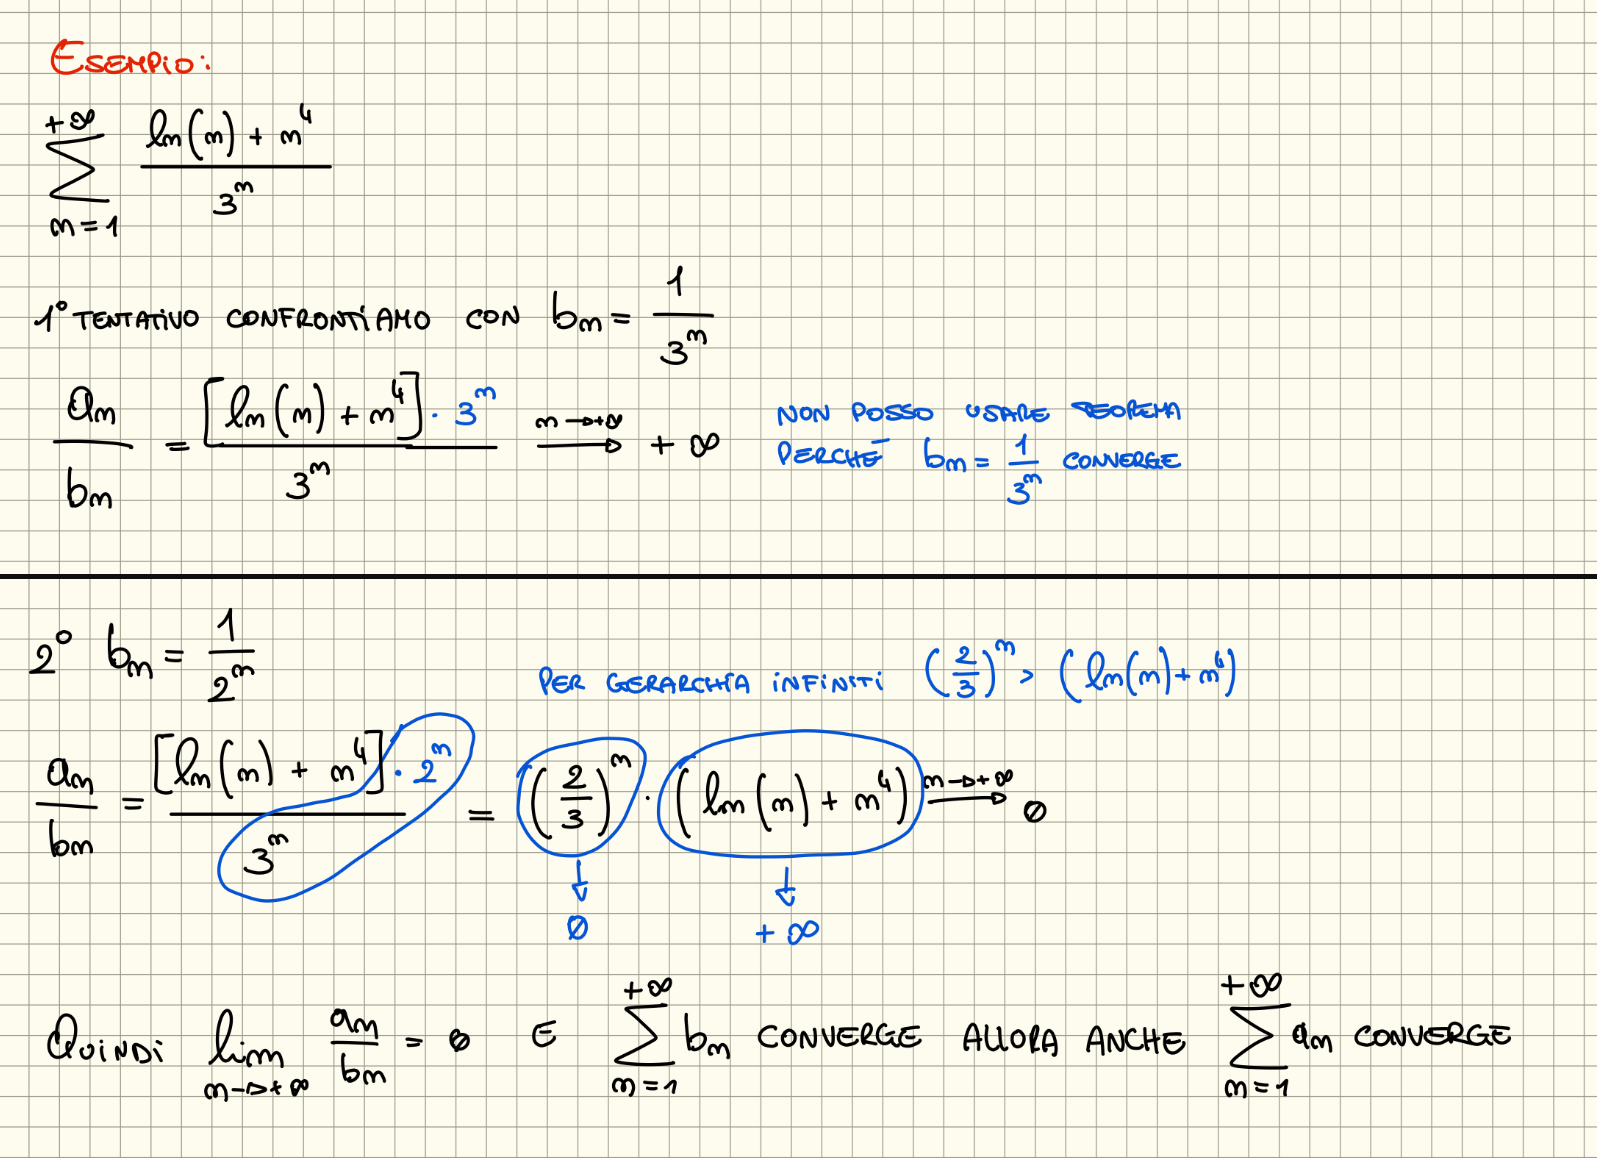 ESEMPIO:
+∞
∑ (ln(n) + n⁴) / 3ⁿ
n=1
1° TENTATIVO CONFRONTIAMO CON bn = 1 / 3ⁿ
an / bn = [ln(n) + n⁴] · 3ⁿ / 3ⁿ n→+∞ + ∞
NON POSSO USARE TEOREMA
PERCHÉ bn = 1 / 3ⁿ CONVERGE
2° bn = 1 / 2ⁿ
PER GERARCHIA INFINITI (2/3)ⁿ > (ln(n) + n⁴)
an / bn = [ln(n) + n⁴] · 2ⁿ / 3ⁿ = (2/3)ⁿ · (ln(n) + n⁴) n→+∞ 0
↓ 0 ↓ + ∞
QUINDI lim n→+∞ an / bn = 0 E +∞ ∑ n=1 bn CONVERGE ALLORA ANCHE +∞ ∑ n=1 an CONVERGE